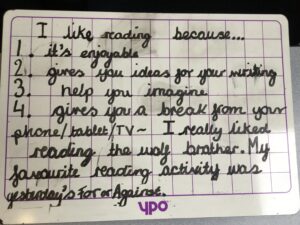 I like reading because...
1. it's enjoyable
2. gives you ideas for your writing
3. help you imagine
4. gives you a break from your
phone/tablet/TV~ I really liked
reading the wolf brother. My
favourite reading activity was
yesterday's For or Against.
YPO